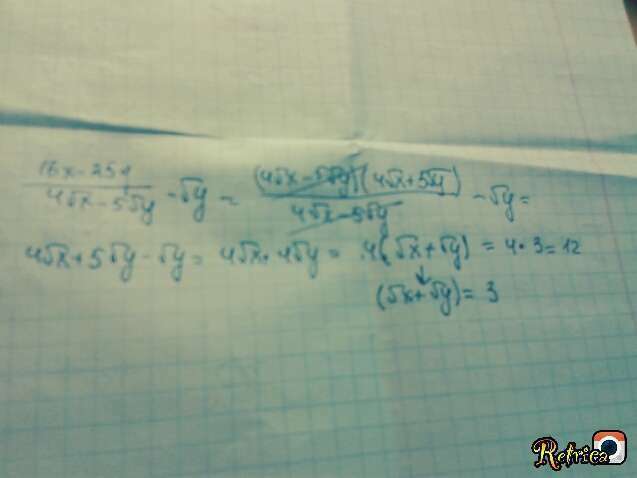 16x-25y / 4√x-5√y - √y = (4√x-5√y)(4√x+5√y) / 4√x-5√y - √y =
4√x+5√y-√y = 4√x+4√y = 4(√x+√y) = 4·3=12
(√x+√y)=3
Retrica